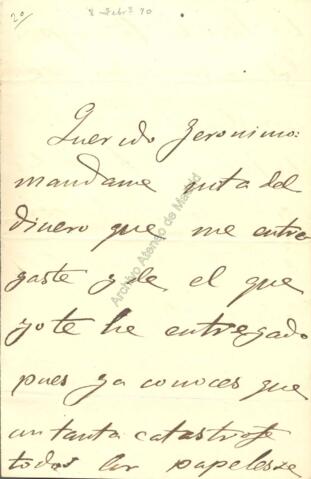 2º
8 Febrº 90
Querido Jeronimo:
mandame nota del
dinero que me entre
gaste y de el que
yo te he entregado
pues ya conoces que
con tanta catastrofe
todos los papeles se
Archivo Ateneo de Madrid